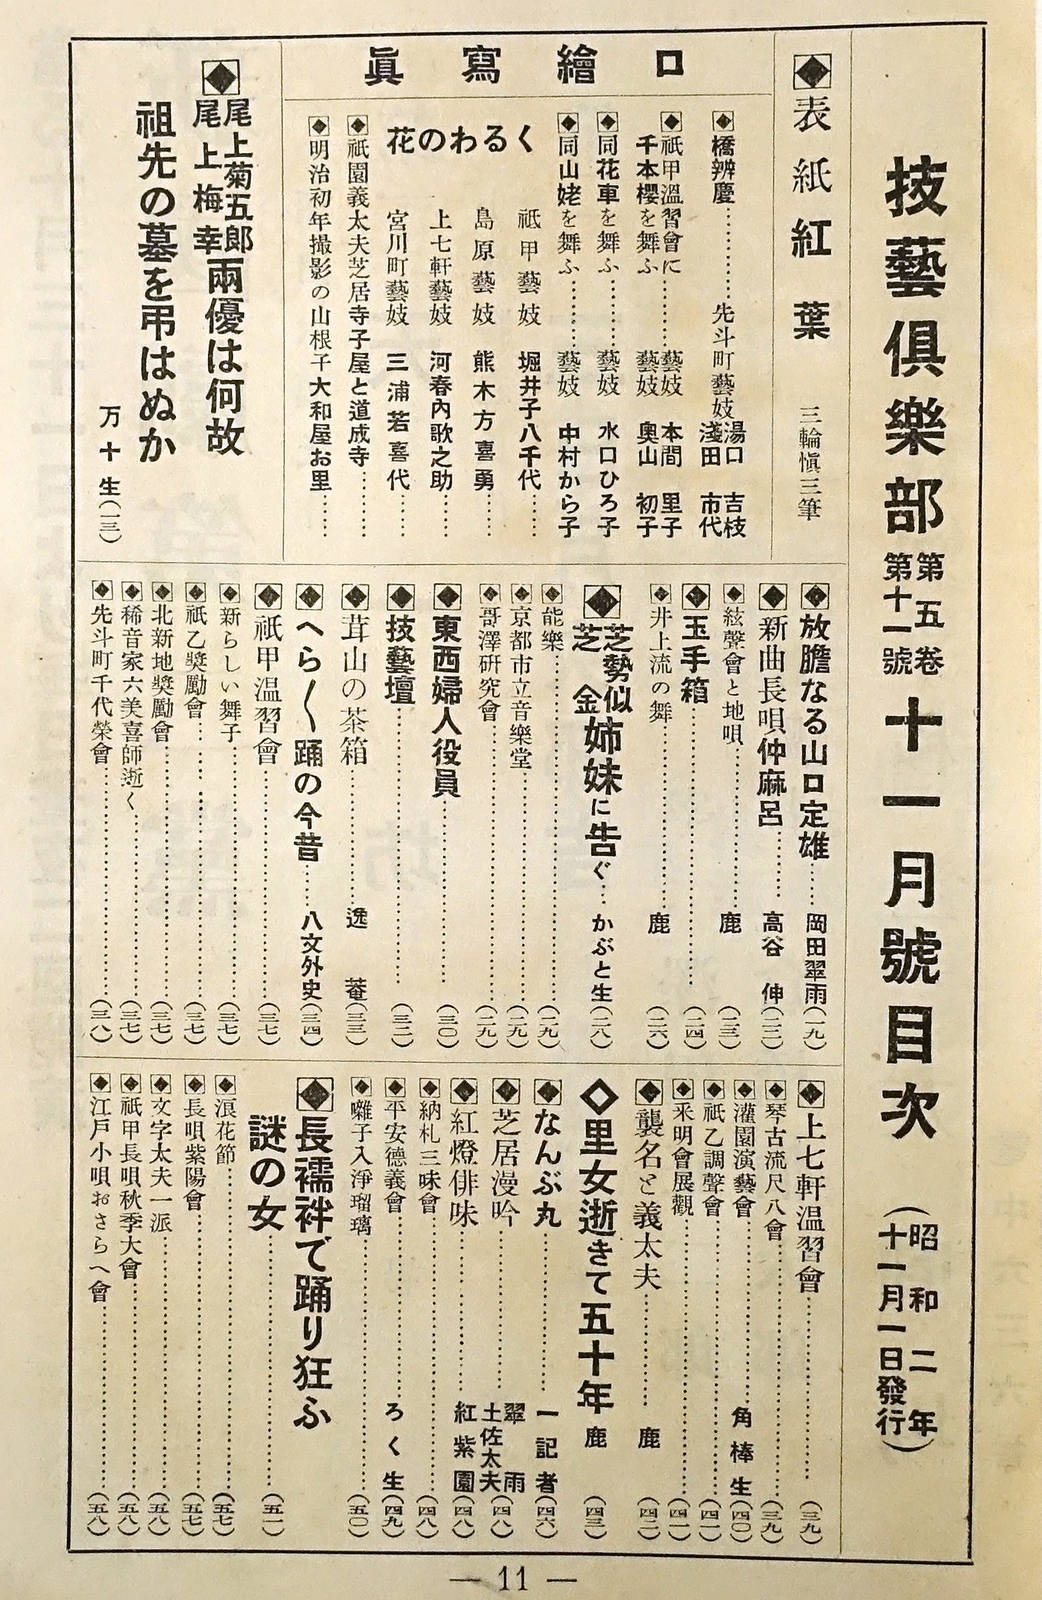 技藝俱樂部 第五卷第十一號 十一月號目次 (昭和二年十一月一日發行)
表紙 紅葉 三輪愼三筆
口繪寫眞
橋辨慶……先斗町藝妓 湯口吉枝 淺田市代
祇甲溫習會に千本櫻を舞ふ……藝妓 本間里子 藝妓 奧山初子
同花車を舞ふ……藝妓 水口ひろ子
同山姥を舞ふ……藝妓 中村から子
くるわの花
祇甲藝妓 堀井子八千代……
島原藝妓 熊木方喜勇……
上七軒藝妓 河春內歌之助……
宮川町藝妓 三浦若喜代……
祇園義太夫芝居寺子屋と道成寺……
明治初年撮影の山根子大和屋お里……
尾上菊五郎 尾上梅幸 兩優は何故
祖先の墓を弔はぬか 万十生(一三)
放膽なる山口定雄……岡田翠雨(一九)
新曲長唄仲麻呂……高谷伸(二二)
絃聲會と地唄……鹿(二三)
玉手箱……(二四)
井上流の舞……鹿(二六)
芝勢似 芝金 姉妹に告ぐ……かぶと生(二八)
能樂……(二九)
京都市立音樂堂……(二九)
哥澤研究會……(二九)
東西婦人役員……(三〇)
技藝壇……(三二)
茸山の茶箱……逸菴(三三)
へら〱踊の今昔……八文外史(三四)
祇甲溫習會……(三七)
新らしい舞子……(三七)
祇乙奬勵會……(三七)
北新地奬勵會……(三七)
稀音家六美喜師逝く……(三七)
先斗町千代榮會……(三八)
上七軒溫習會……(三九)
琴古流尺八會……(三九)
灌園演藝會……角棒生(四〇)
祇乙調聲會……(四一)
釆明會展觀……(四一)
襲名と義太夫……鹿(四二)
◇里女逝きて五十年 鹿(四三)
なんぶ丸……一記者(四六)
芝居漫吟……翠雨 土佐太夫(四八)
紅燈俳味……紅紫園(四八)
納札三昧會……(四八)
平安德義會……ろく生(四九)
囃子入淨瑠璃……(五〇)
長襦袢で踊り狂ふ
謎の女……(五一)
浪花節……(五七)
長唄紫陽會……(五七)
文字太夫一派……(五八)
祇甲長唄秋季大會……(五八)
江戶小唄おさらへ會……(五八)
— 11 —